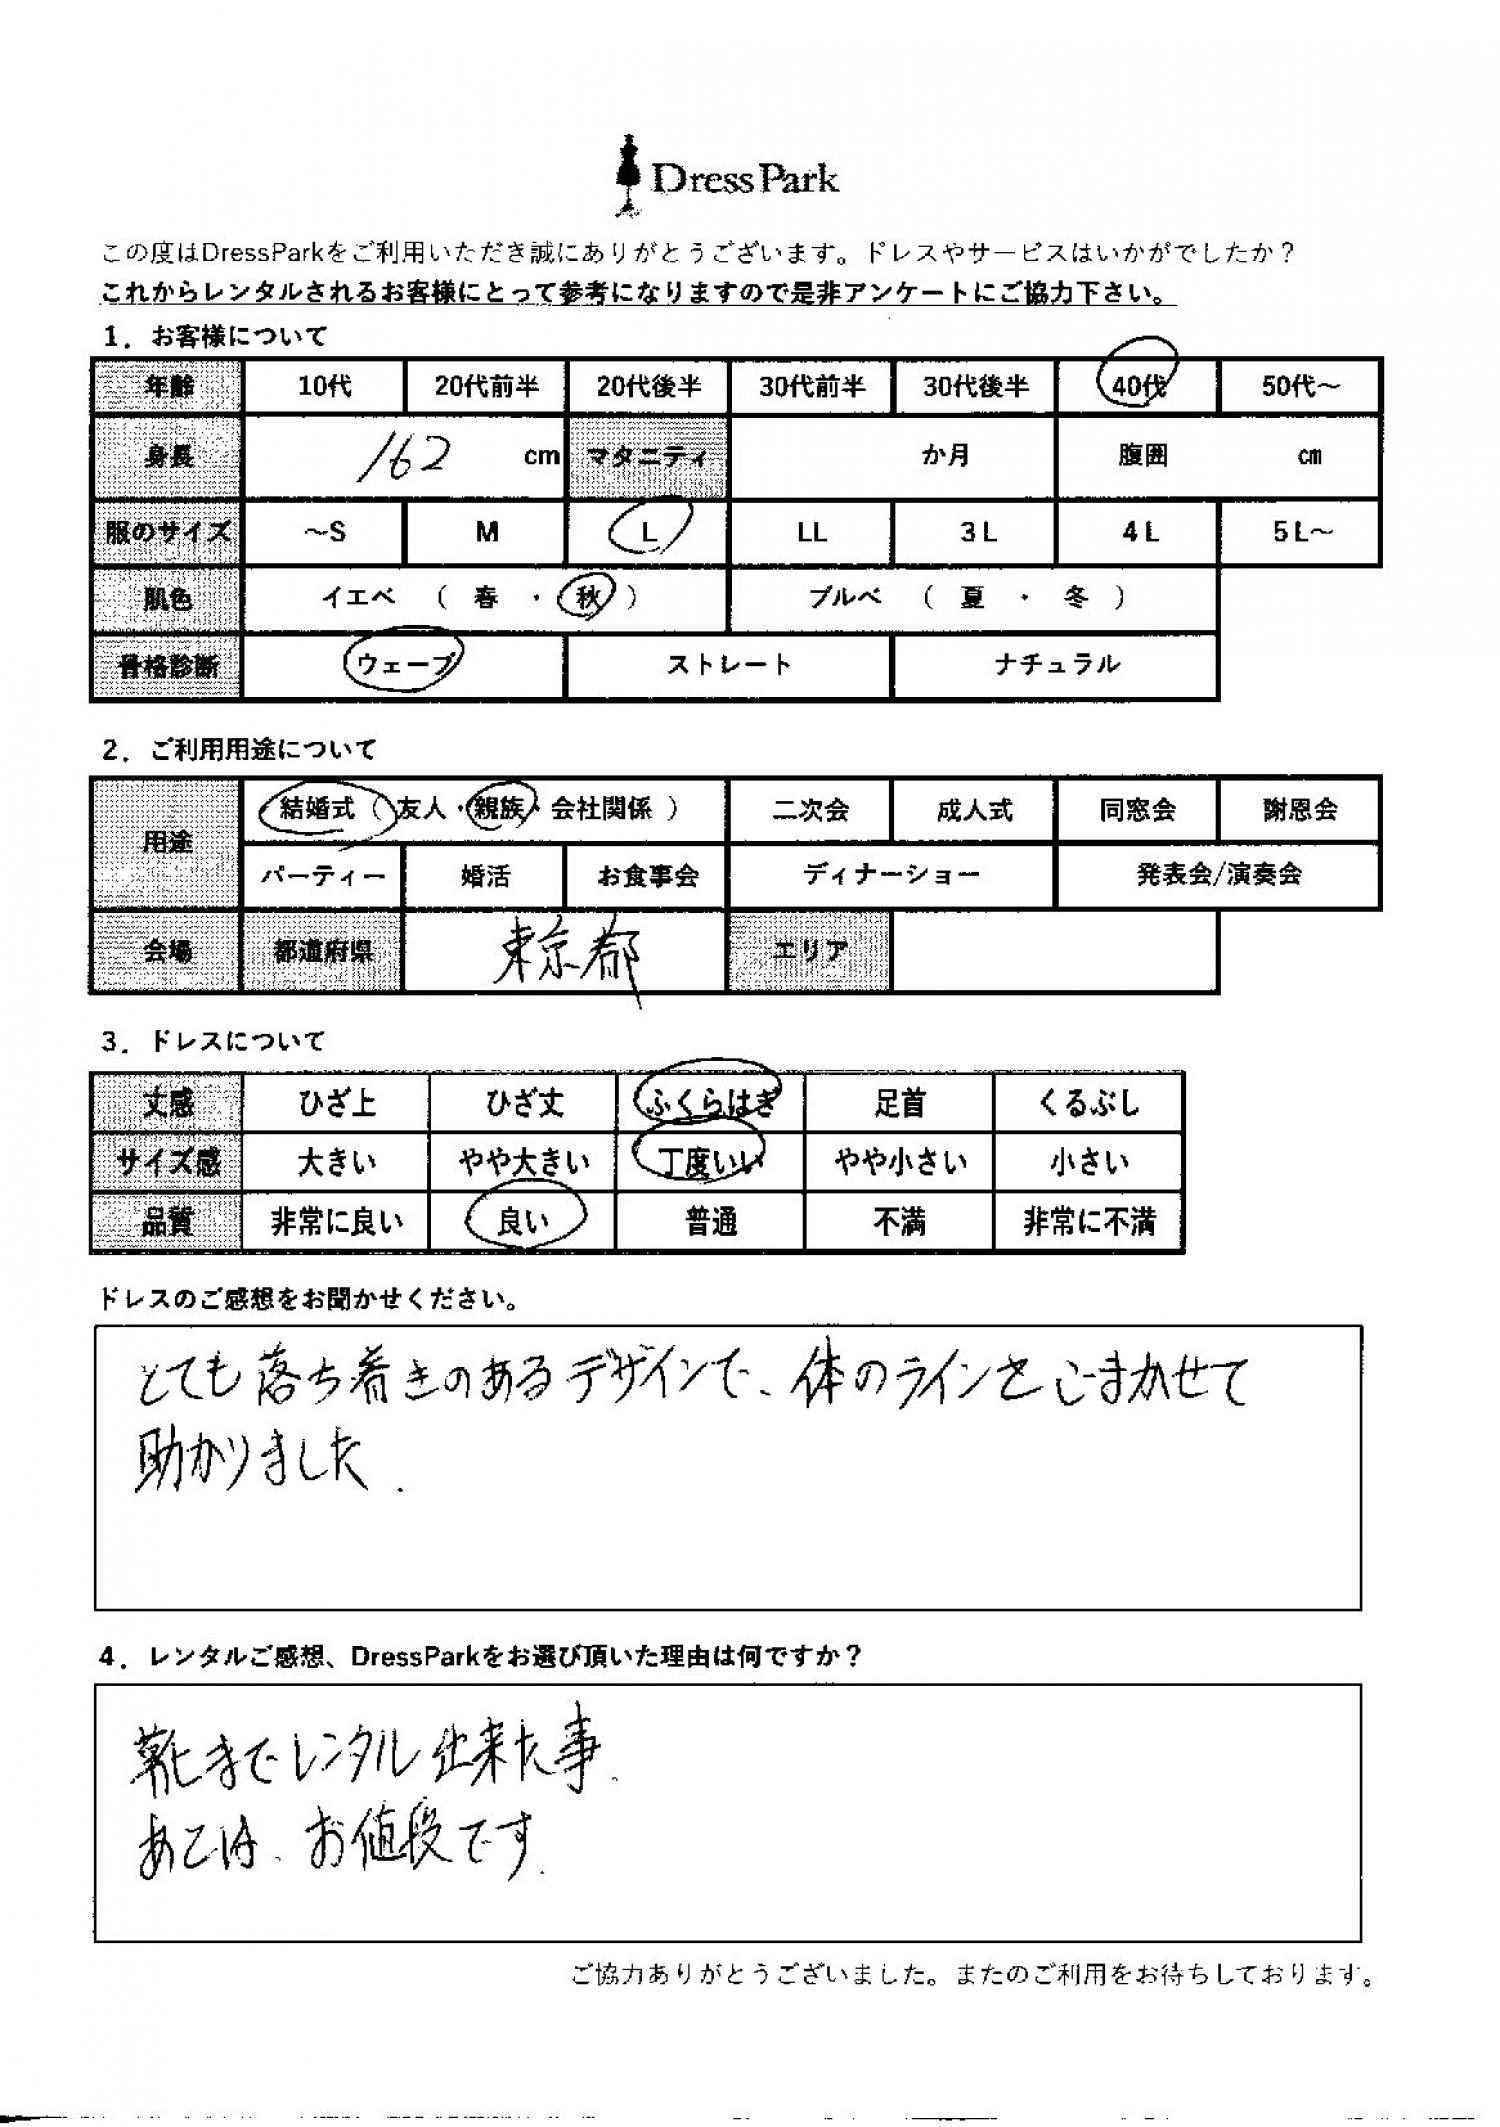 DressPark
この度はDressParkをご利用いただき誠にありがとうございます。ドレスやサービスはいかがでしたか？
これからレンタルされるお客様にとって参考になりますので是非アンケートにご協力下さい。
1．お客様について
年齢 10代 20代前半 20代後半 30代前半 30代後半 40代 50代～
身長 162 cm マタニティ か月 腹囲 cm
服のサイズ ～S M L LL 3L 4L 5L～
肌色 イエベ （ 春 ・ 秋 ） ブルベ （ 夏 ・ 冬 ）
骨格診断 ウェーブ ストレート ナチュラル
2．ご利用用途について
用途 結婚式（ 友人・親族・会社関係 ） 二次会 成人式 同窓会 謝恩会
パーティー 婚活 お食事会 ディナーショー 発表会/演奏会
会場 都道府県 東京都 エリア
3．ドレスについて
丈感 ひざ上 ひざ丈 ふくらはぎ 足首 くるぶし
サイズ感 大きい やや大きい 丁度いい やや小さい 小さい
品質 非常に良い 良い 普通 不満 非常に不満
ドレスのご感想をお聞かせください。
とても落ち着きのあるデザインで、体のラインをごまかせて
助かりました.
4．レンタルご感想、DressParkをお選び頂いた理由は何ですか？
靴までレンタル出来た事.
あとは、お値段です.
ご協力ありがとうございました。またのご利用をお待ちしております。